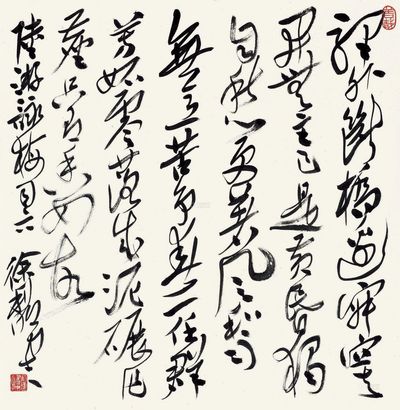 驛外斷橋邊寂寞
開無主已是黃昏獨
自愁更著風和雨
無意苦爭春一任群
芳妒零落成泥碾作
塵只有香如故
陸游詠梅 徐